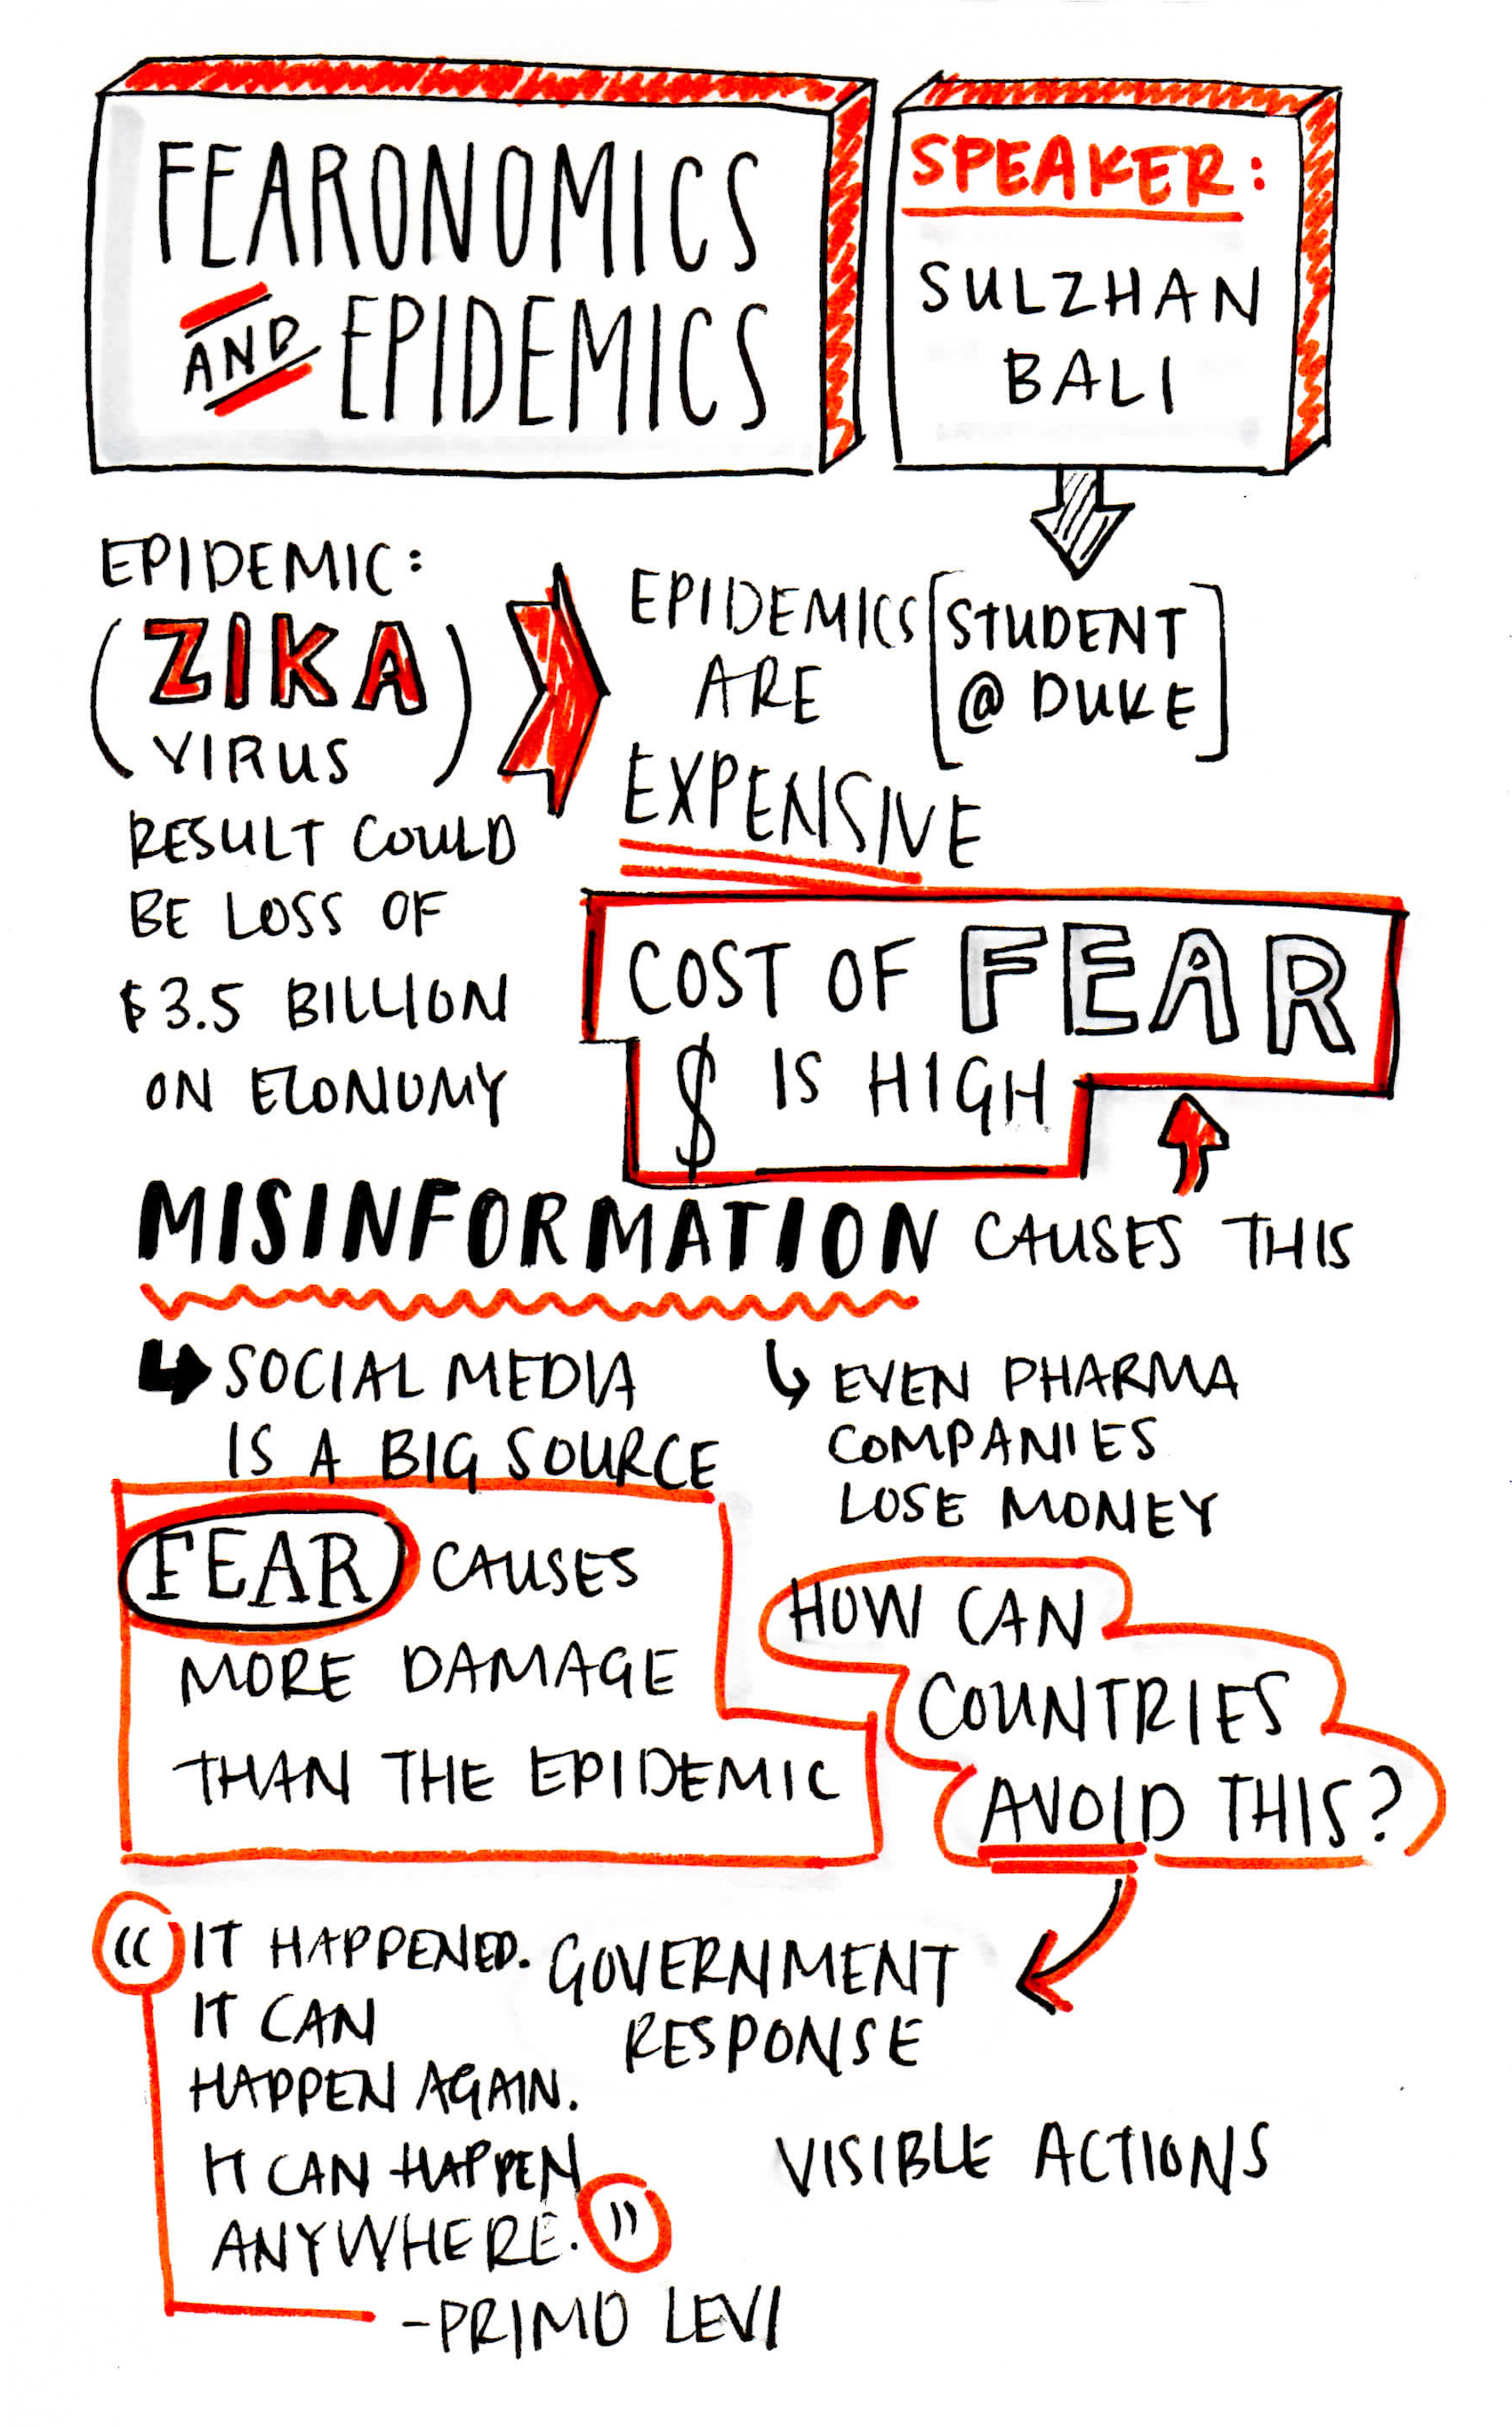 FEARONOMICS
AND EPIDEMICS
SPEAKER:
SULZHAN
BALI
[STUDENT
@ DUKE]
EPIDEMIC:
(ZIKA
VIRUS)
RESULT COULD
BE LOSS OF
$3.5 BILLION
ON ECONOMY
EPIDEMICS
ARE
EXPENSIVE
COST OF FEAR
$ IS HIGH
MISINFORMATION CAUSES THIS
SOCIAL MEDIA
IS A BIG SOURCE
EVEN PHARMA
COMPANIES
LOSE MONEY
FEAR CAUSES
MORE DAMAGE
THAN THE EPIDEMIC
HOW CAN
COUNTRIES
AVOID THIS?
GOVERNMENT
RESPONSE
VISIBLE ACTIONS
"IT HAPPENED.
IT CAN
HAPPEN AGAIN.
IT CAN HAPPEN
ANYWHERE."
-PRIMO LEVI